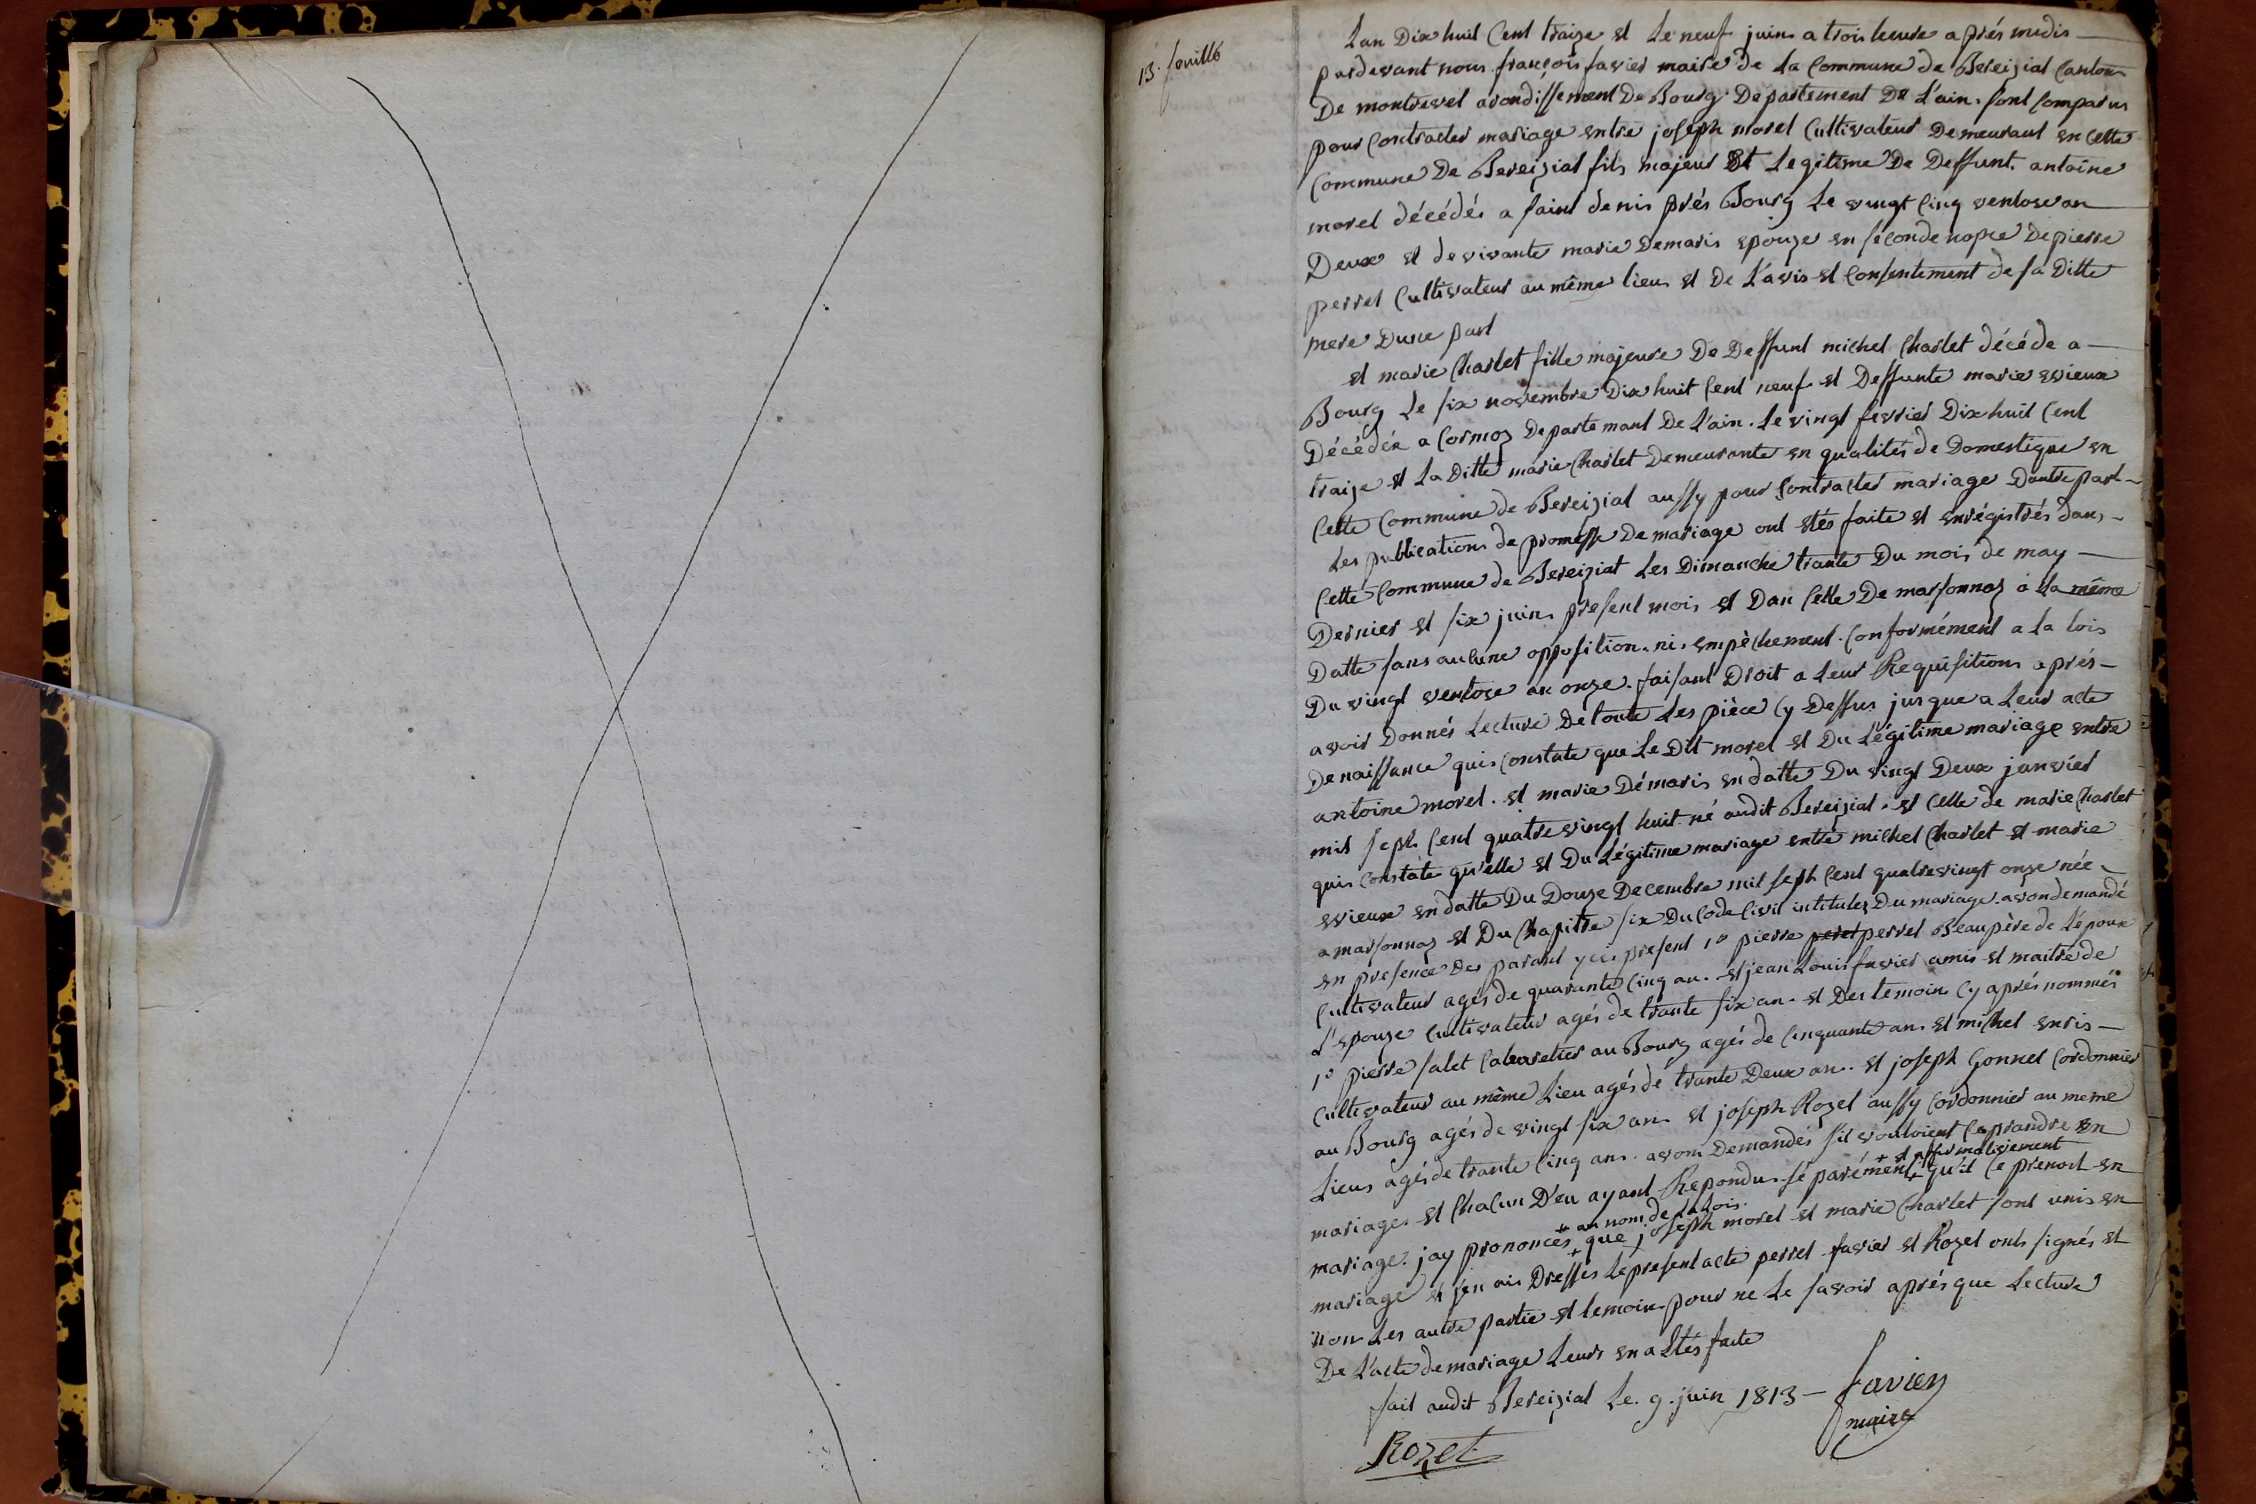 13. feuille
Lan Dix huit Cent traize et le neuf juin a trois heure aprés midis
pardevant nous françois favier maire de la Commune de Bereiziat Canton
De montrevel arondissement De Bourg Departement De L'ain. sont Comparus
pour Contracter mariage entre joseph morel Cultivateur Demeurant en cette
Commune De Bereiziat fils majeur Et Legitime De Deffunt. antoine
morel décédés a saint denis prés Bourg Le vingt Cinq ventose an
Deux et de vivante marie Demaris epouze en seconde nopce De pierre
perret Cultivateur au même lieu et De L'avis et Consentement de sa Ditte
mere Dune part
et marie Charlet fille majeure De Deffunt michel Charlet décéde a
Bourg Le six novembre Dix huit Cent neuf et Deffunte marie evieux
Décédée a Cormoz Departemant De L'ain. Le vingt fevrier Dix huit Cent
traize et La Ditte marie Charlet Demeurante en qualités de Domestique en
Cette Commune de Bereiziat aussy pour Contracter mariage Dautre part
Les publications de promesse De mariage ont etés faite et enrégistrés dans
Cette Commune de Bereiziat Les Dimanche trante Du mois de may
Dernier et six juin present mois et Dan Celle De marsonnaz a La même
Datte sans aucune opposition. ni empèchement. Conformément a la lois
Du vingt ventose an onze. faisant Droit a Leur Requisitions aprés
avoir Donnés Lecture De toute Les pièce Cy Dessus jusque a Leur acte
De naissance qui Constate que Le Dit morel et Du Légitime mariage entre
antoine morel. et marie Démaris en datte Du vingt Deux janvier
mil seph Cent quatre vingt huit né audit Bereiziat. et Celle de marie Charlet
qui Constate qu'elle et Du Légitime mariage entre michel Charlet et marie
evieux en datte Du Douze Decembre mil seph Cent quatrevingt onze née
a marsonnaz et Du Chapitre six Du Code Civil intitulez Du mariage. avon demandé
en presence Des parant yci present 1º pierre peret perret Beaupère de L'époux
Cultivateur agés de quarante Cinq an. et jean Louis favier amis et maitre de
L'epouze Cultivateur agés de trante six an. et Des temoin Cy aprés nommés
1º pierre salet Cabaretier au Bourg agés de Cinquante an. et michel enris
Cultivateur au même Lieu agés de trante Deux an. et joseph Gonnet Cordonnier
au Bourg agés de vingt six an et joseph Rozet aussy Cordonnier au meme
Lieus agés de trante Cinq ans. avons Demandés sil vouloient Ceprandre en
mariage. et Chacun D'eu ayant Repondu séparément + et affirmativement qu'il Ce prenoit en
mariage. jay prononcés + au nom de La Lois que joseph morel et marie Charlet sont unis en
mariage et jen ais Dressés Le present acte perret favier et Rozet onts signés et
non Les autre partie et temoin pour ne Le savoir aprés que Lecture
De L'acte de mariage Leurs en a Etés faite
fait audit Bereiziat Le. 9. juin 1813 favier
maire
Rozet